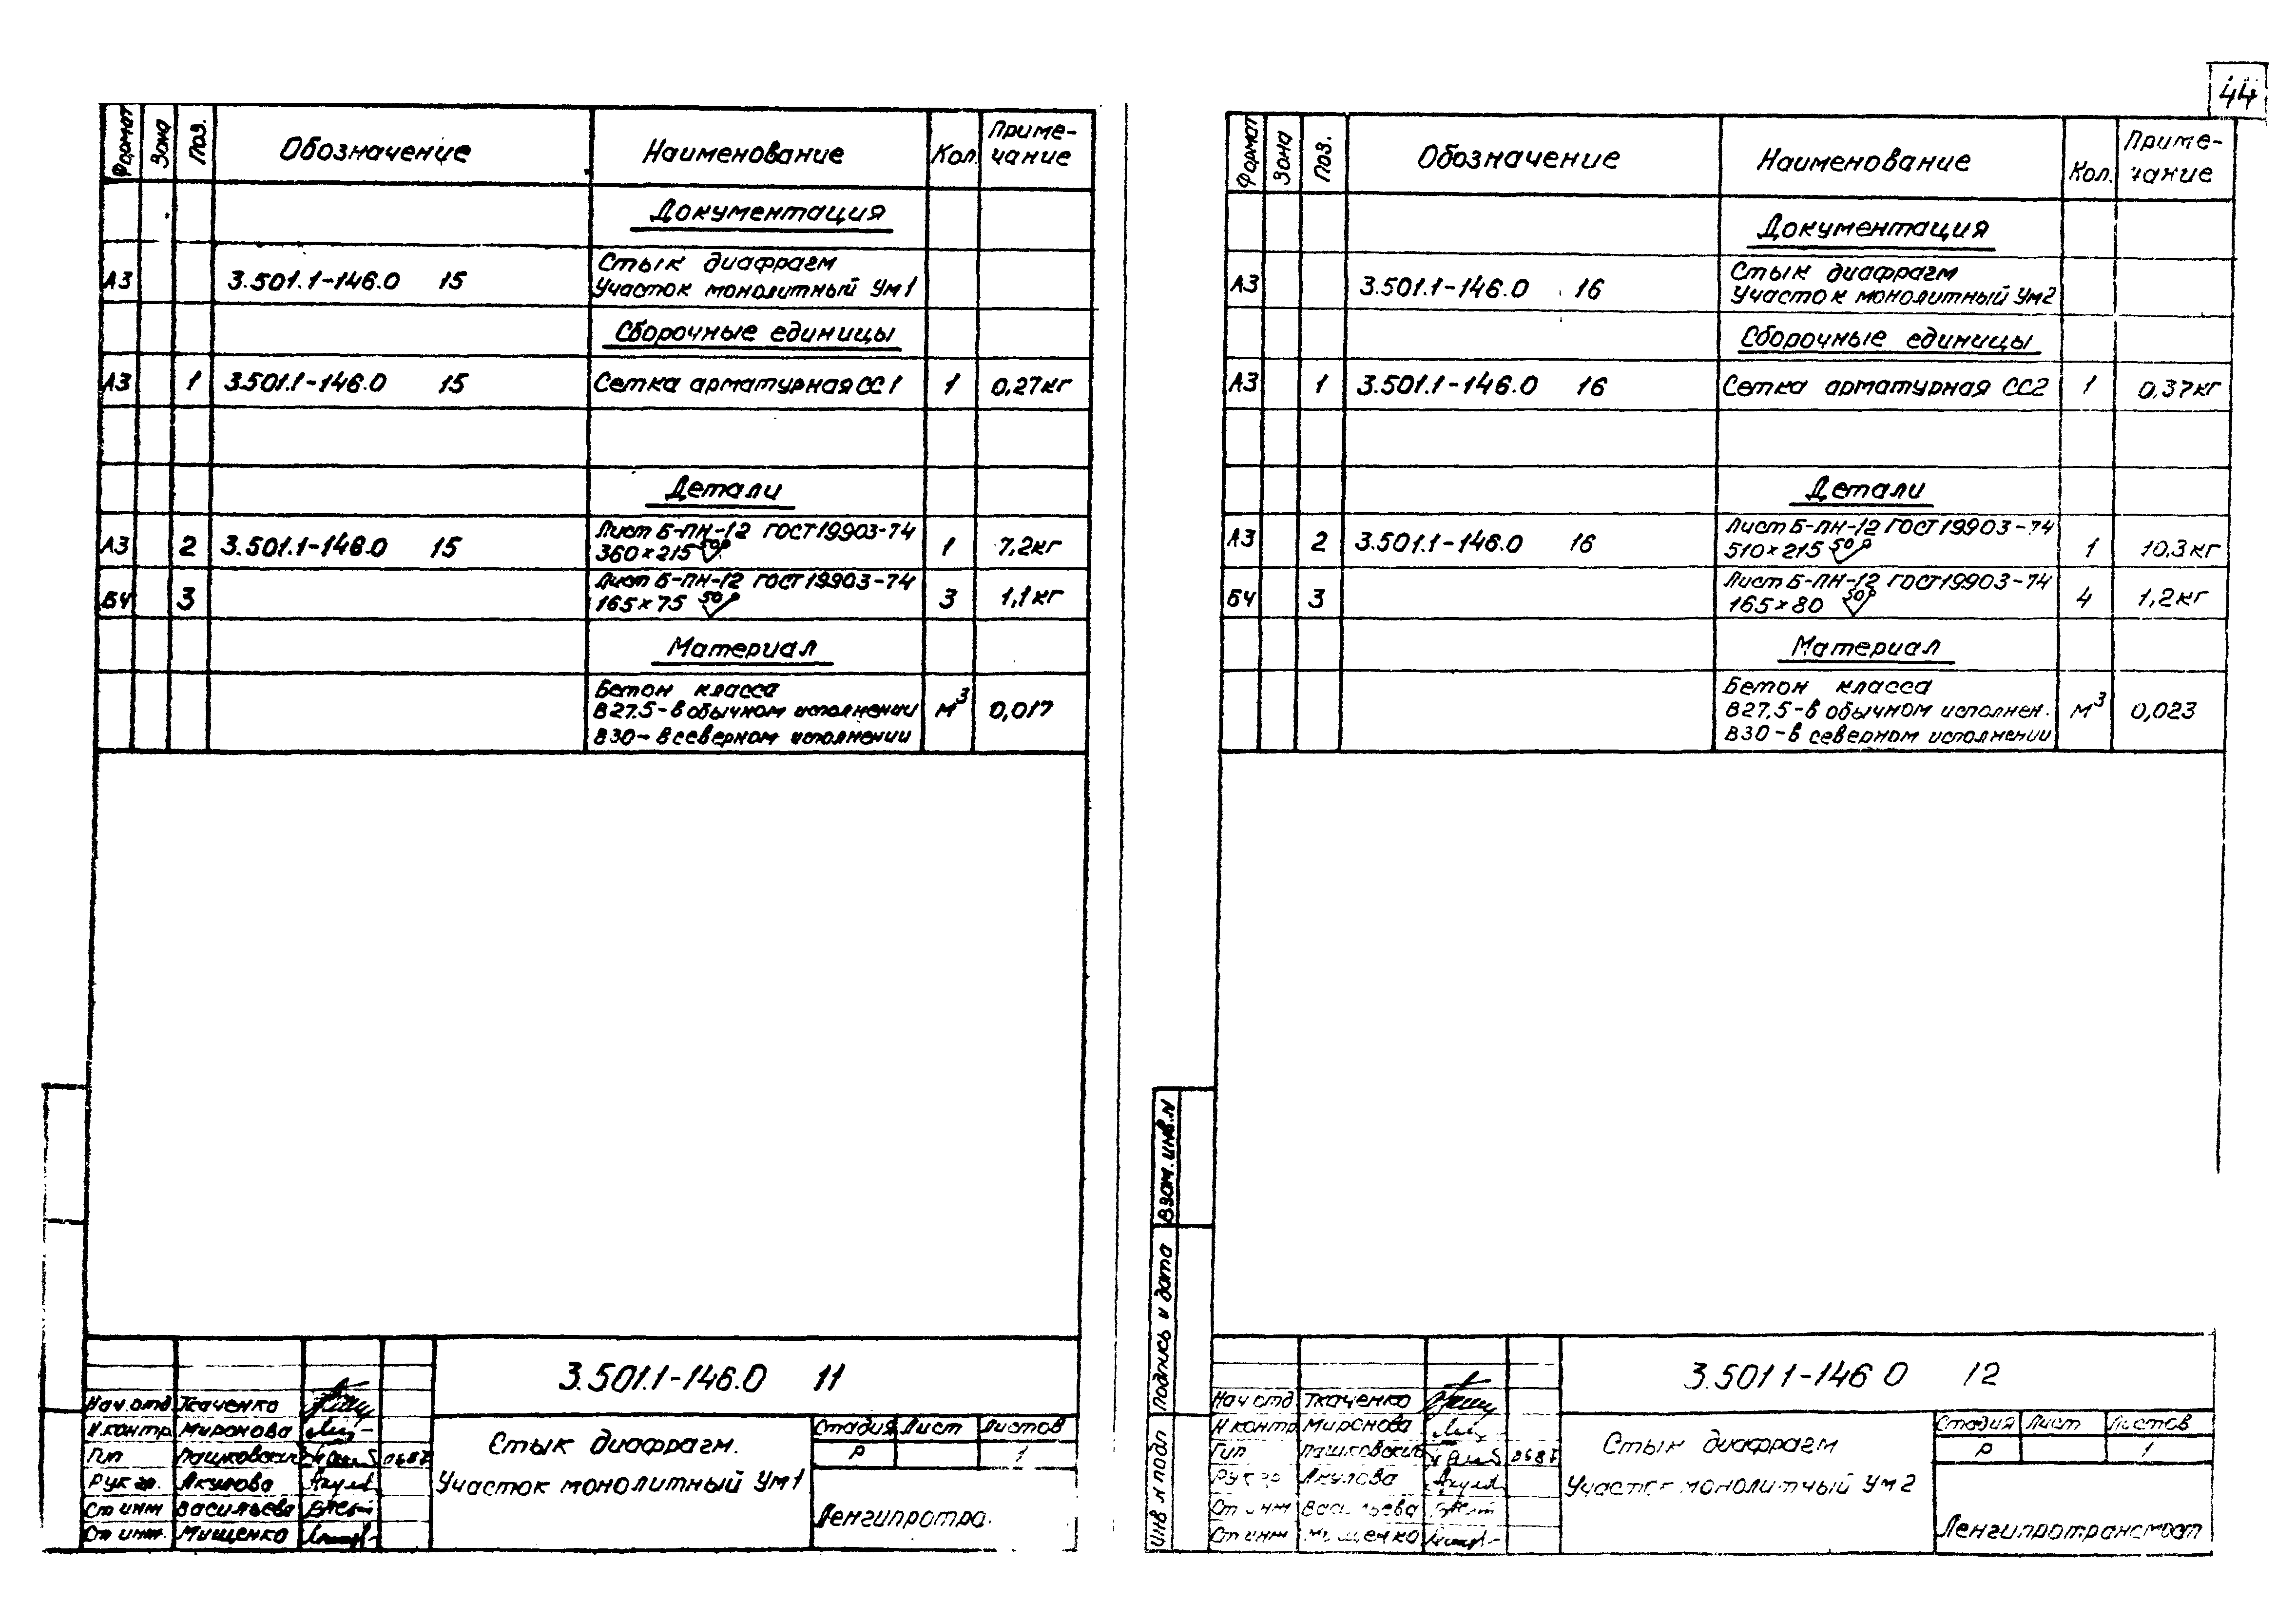 44
Формат Зона Поз. Обозначение Наименование Кол. Приме-
чание
Документация
А3 3.501.1-146.0 15 Стык диафрагм
Участок монолитный Ум1
Сборочные единицы
А3 1 3.501.1-146.0 15 Сетка арматурная СС1 1 0,27кг
Детали
А3 2 3.501.1-146.0 15 Лист Б-ПН-12 ГОСТ 19903-74
360×215 50 1 7,2кг
БЧ 3 Лист Б-ПН-12 ГОСТ 19903-74
165×75 50 3 1,1кг
Материал
Бетон класса
В27.5-в обычном исполнении м³ 0,017
В30-в северном исполнении
3.501.1-146.0 11
Нач.отд Ткаченко
Н контр Миронова
Гип Пашковский 0687
Рук гр. Якулова
Ст инж Васильева
Ст инж. Мищенко
Стык диафрагм.
Участок монолитный Ум1
Стадия Лист Листов
Р 1
Ленгипротра
Формат Зона Поз. Обозначение Наименование Кол. Приме-
чание
Документация
А3 3.501.1-146.0 16 Стык диафрагм
Участок монолитный Ум2
Сборочные единицы
А3 1 3.501.1-146.0 16 Сетка арматурная СС2 1 0,37кг
Детали
А3 2 3.501.1-146.0 16 Лист Б-ПН-12 ГОСТ 19903-74
510×215 50 1 10.3кг
БЧ 3 Лист Б-ПН-12 ГОСТ 19903-74
165×80 50 4 1,2кг
Материал
Бетон класса
В27,5-в обычном исполнен. м³ 0,023
В30-в северном исполнении
Взам. инв. N
Подпись и дата
Инв N подл
3.501 1-146 0 12
Нач отд Ткаченко
Н контр Миронова
Гип Пашковский 0687
Рук гр Якулова
Ст инж Васильева
Ст инж Мищенко
Стык диафрагм
Участок монолитный Ум2
Стадия Лист Листов
Р 1
Ленгипротрансмост